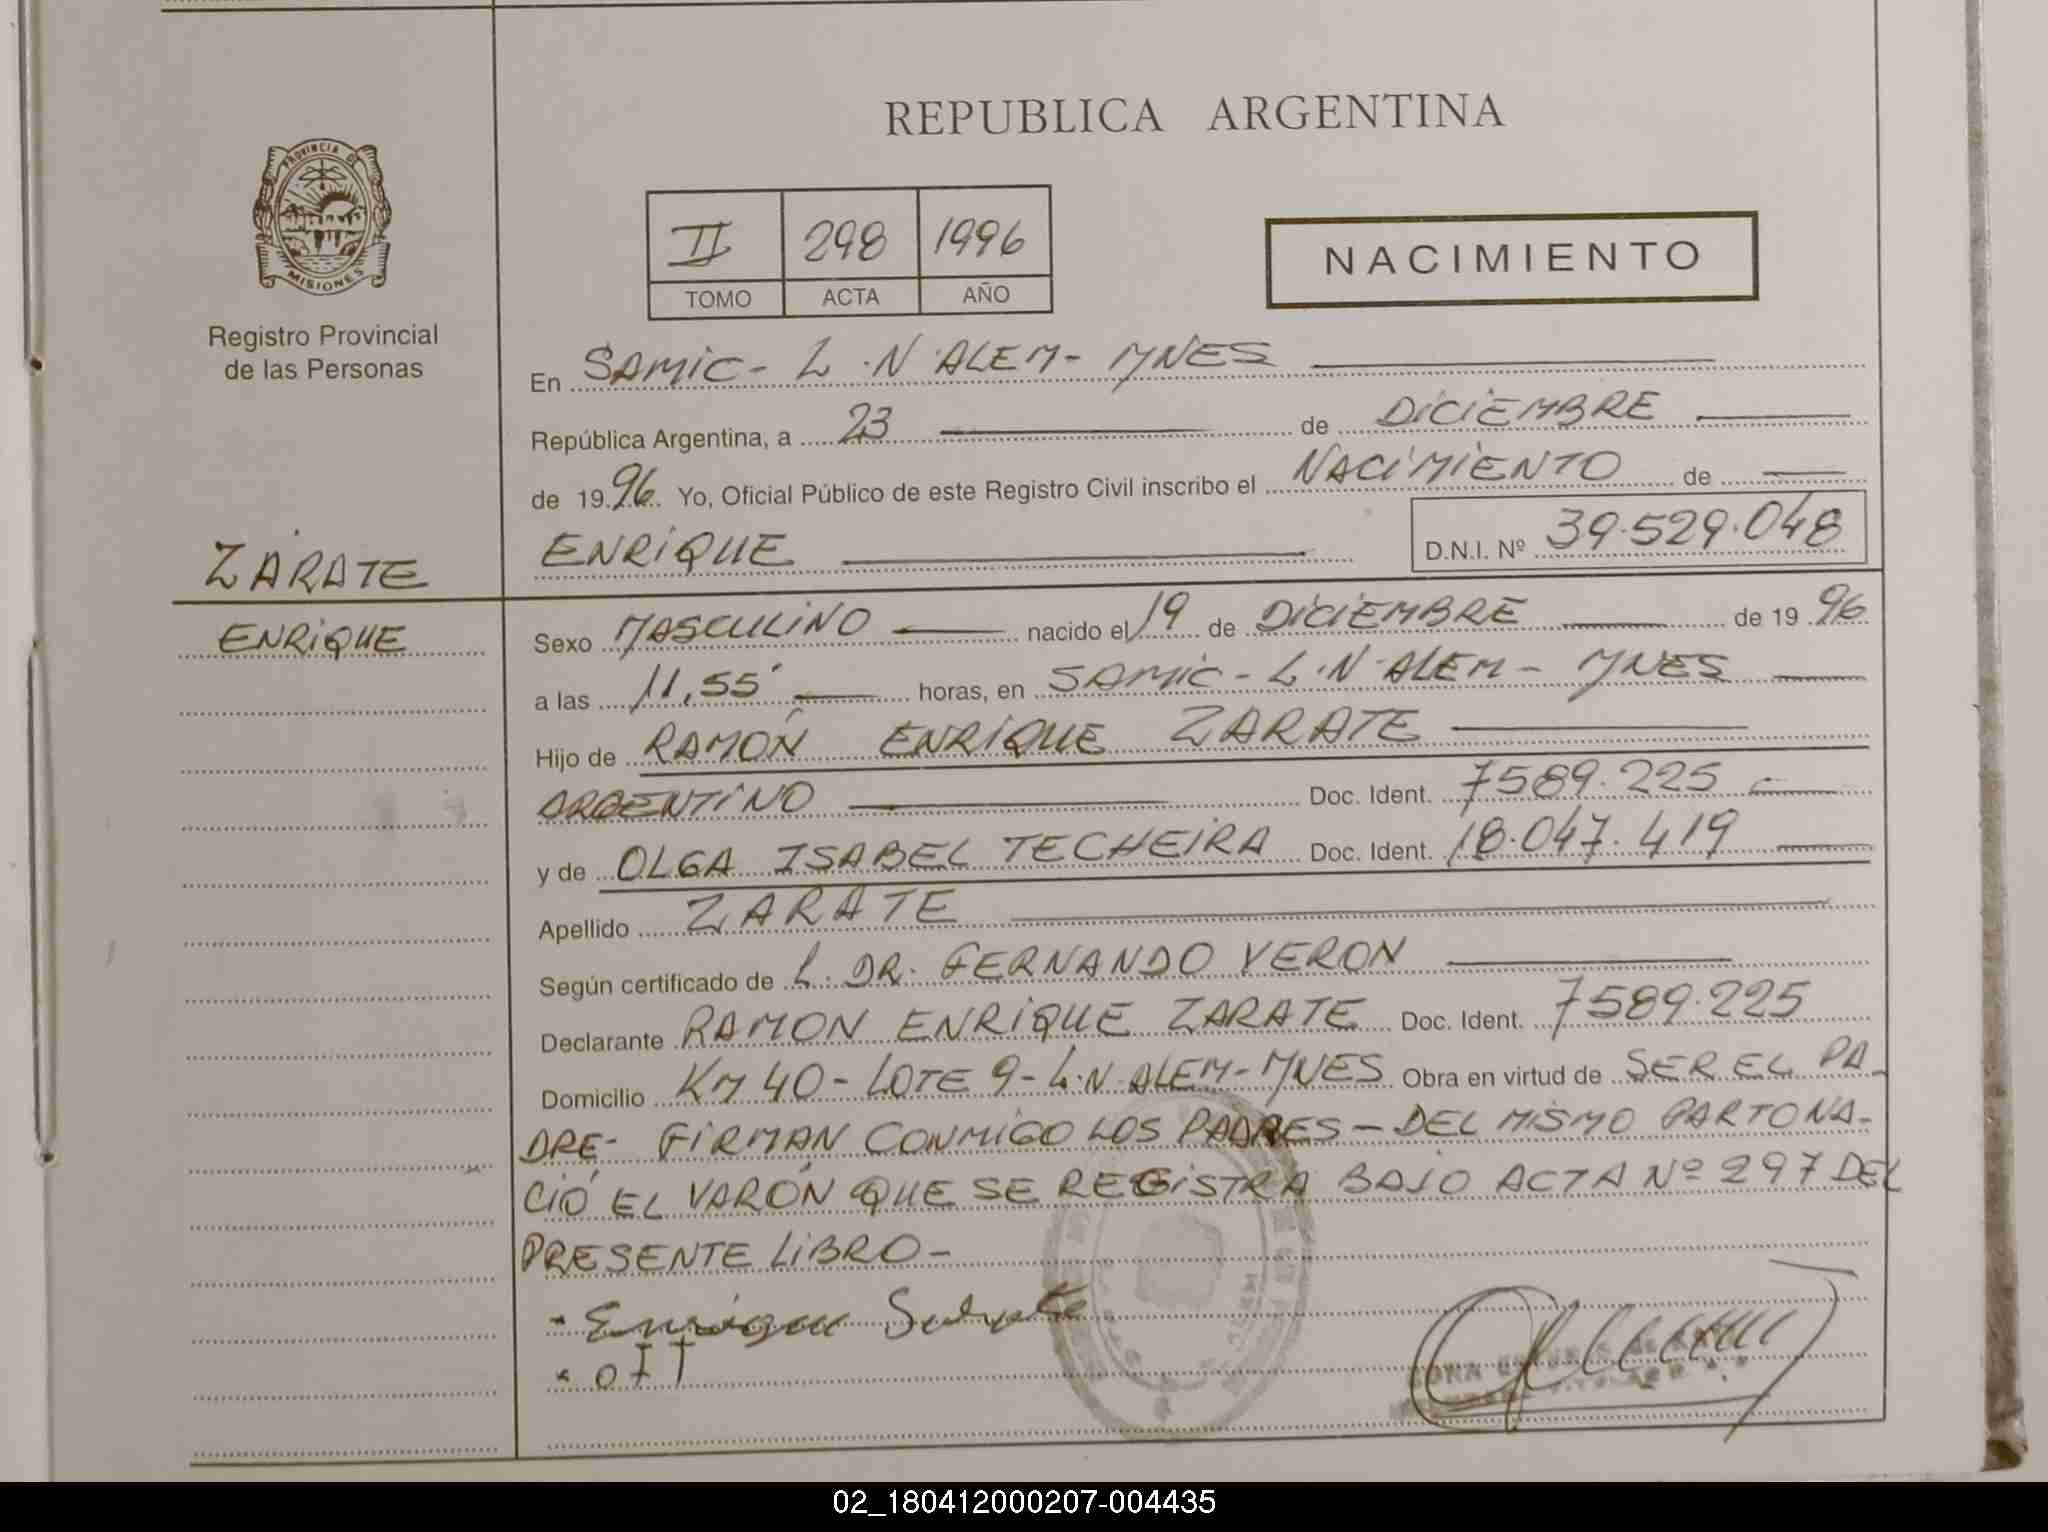 REPUBLICA ARGENTINA
PROVINCIA DE
MISIONES
Registro Provincial
de las Personas
II 298 1996
TOMO ACTA AÑO
NACIMIENTO
En SAMIC - L.N ALEM - MNES
República Argentina, a 23 de DICIEMBRE
de 1996. Yo, Oficial Público de este Registro Civil inscribo el NACIMIENTO de
ZÁRATE
ENRIQUE
ENRIQUE D.N.I. Nº 39.529.048
Sexo MASCULINO nacido el 19 de DICIEMBRE de 1996
a las 11,55' horas, en SAMIC - L.N. ALEM - MNES
Hijo de RAMÓN ENRIQUE ZARATE
ARGENTINO Doc. Ident. 7589.225
y de OLGA ISABEL TECHEIRA Doc. Ident. 18.047.419
Apellido ZARATE
Según certificado de L. DR. FERNANDO VERON
Declarante RAMON ENRIQUE ZARATE Doc. Ident. 7589.225
Domicilio KM 40 - LOTE 9 - L.N. ALEM - MNES Obra en virtud de SER EL PA-
DRE - FIRMAN CONMIGO LOS PADRES - DEL MISMO PARTO NA-
CIÓ EL VARÓN QUE SE REGISTRA BAJO ACTA Nº 297 DEL
PRESENTE LIBRO -
Enrique
OIT
02_180412000207-004435